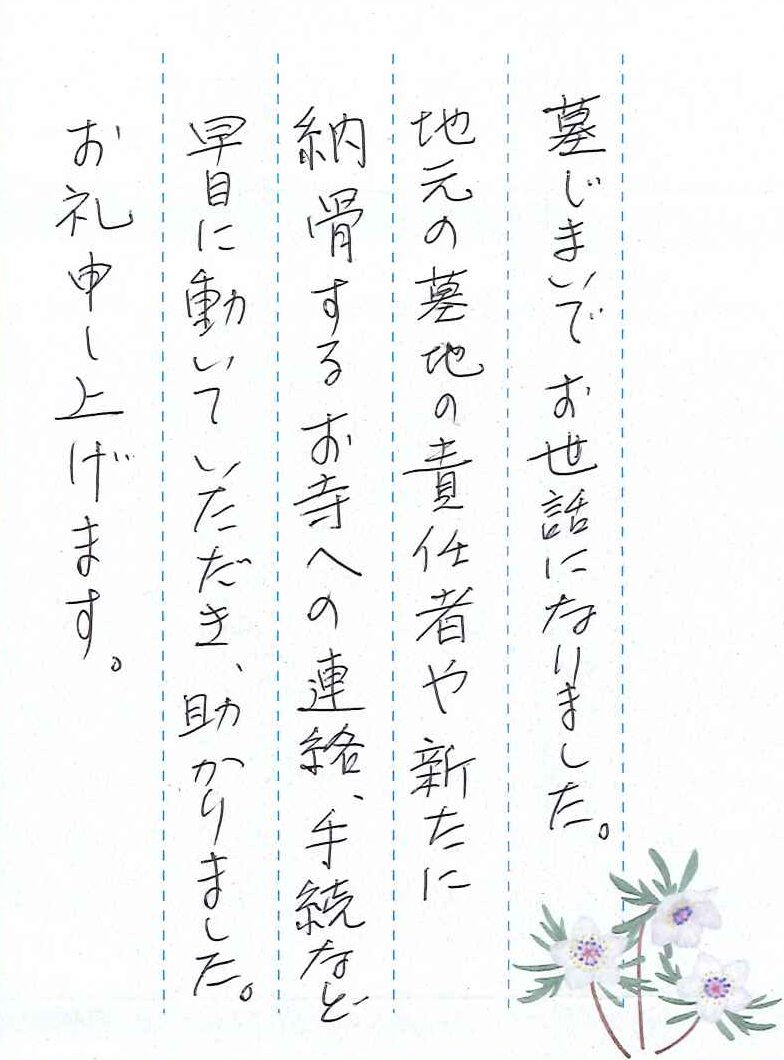 墓じまいでお世話になりました。
地元の墓地の責任者や新たに
納骨するお寺への連絡、手続など
早目に動いていただき、助かりました。
お礼申し上げます。